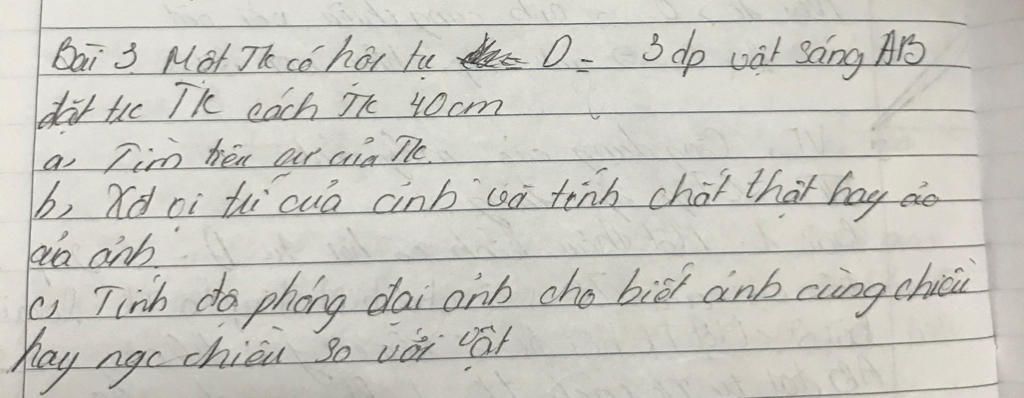 Bài 3. Một Tk có hội tụ D = 3dp vật sáng AB
đặt trc TK cách TK 40cm
a, Tìm tiêu cự của TK
b, Xđ vị trí của ảnh và tính chất thật hay ảo
của ảnh
c, Tính độ phóng đại ảnh cho biết ảnh cùng chiều
hay ngc chiều so với vật